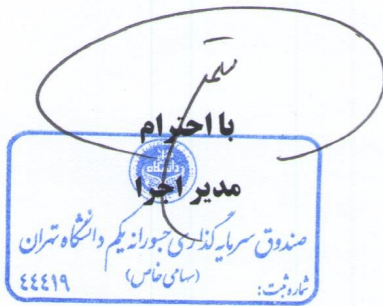 با احترام
مدیر اجرا
صندوق سرمایه گذاری جسورانه یکم دانشگاه تهران
(سهامی خاص)
شماره ثبت: ٤٤٤١٩